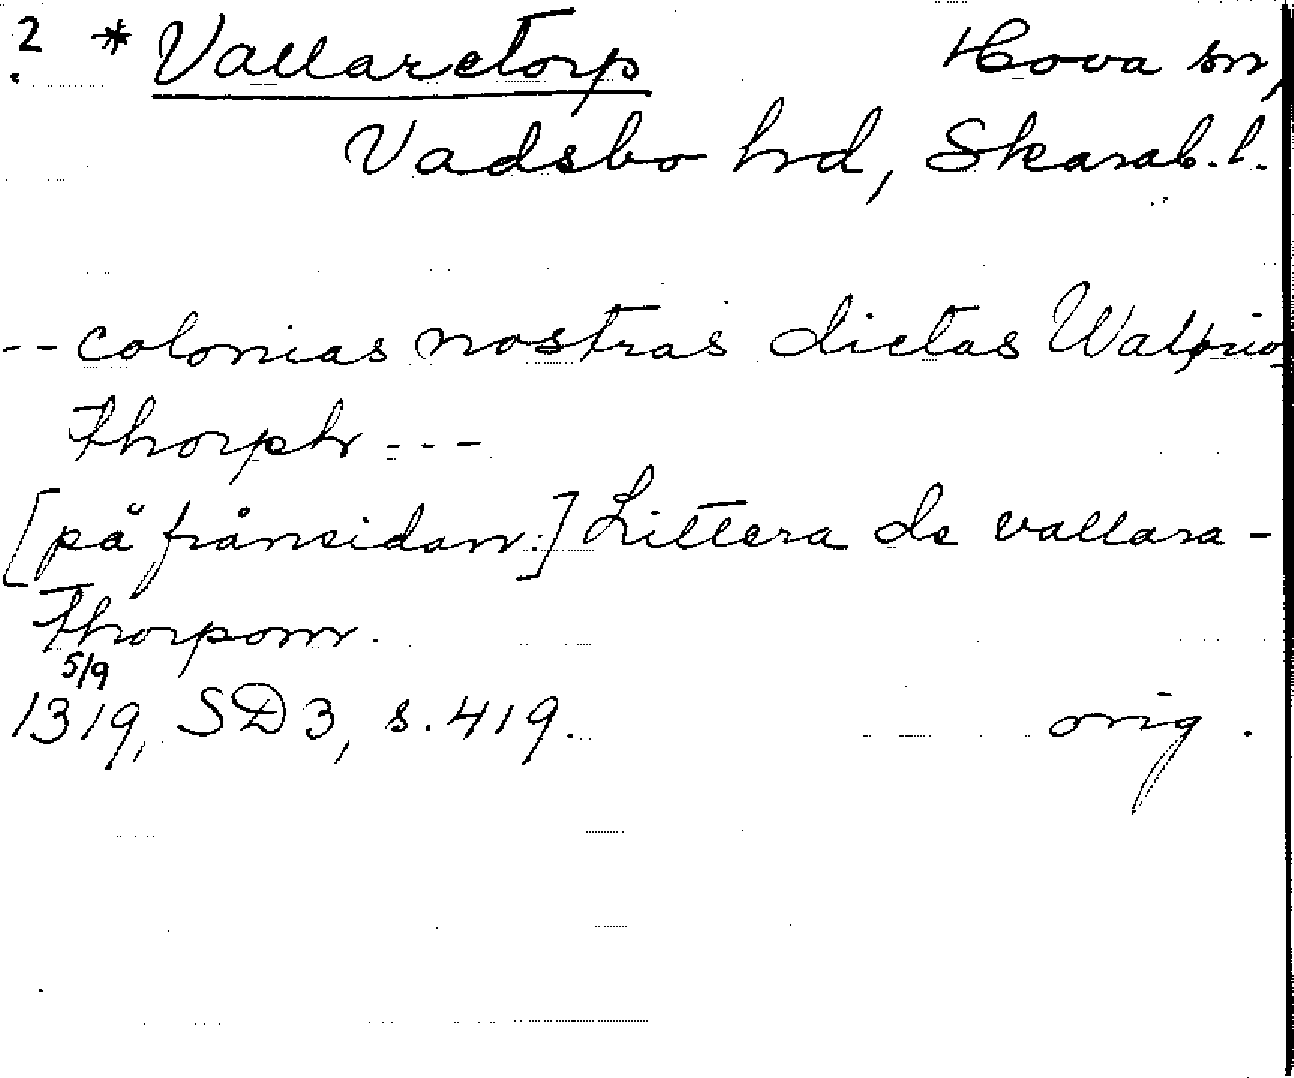 ? * Vallaretorp Hova sn,
Vadsbo hrd, Skarab. l.
-- colonias nostras dictas
thorph ---
[på frånsidan:] Littera de vallara-
thorpom.
5/9
1319, SD 3, s. 419. orig.